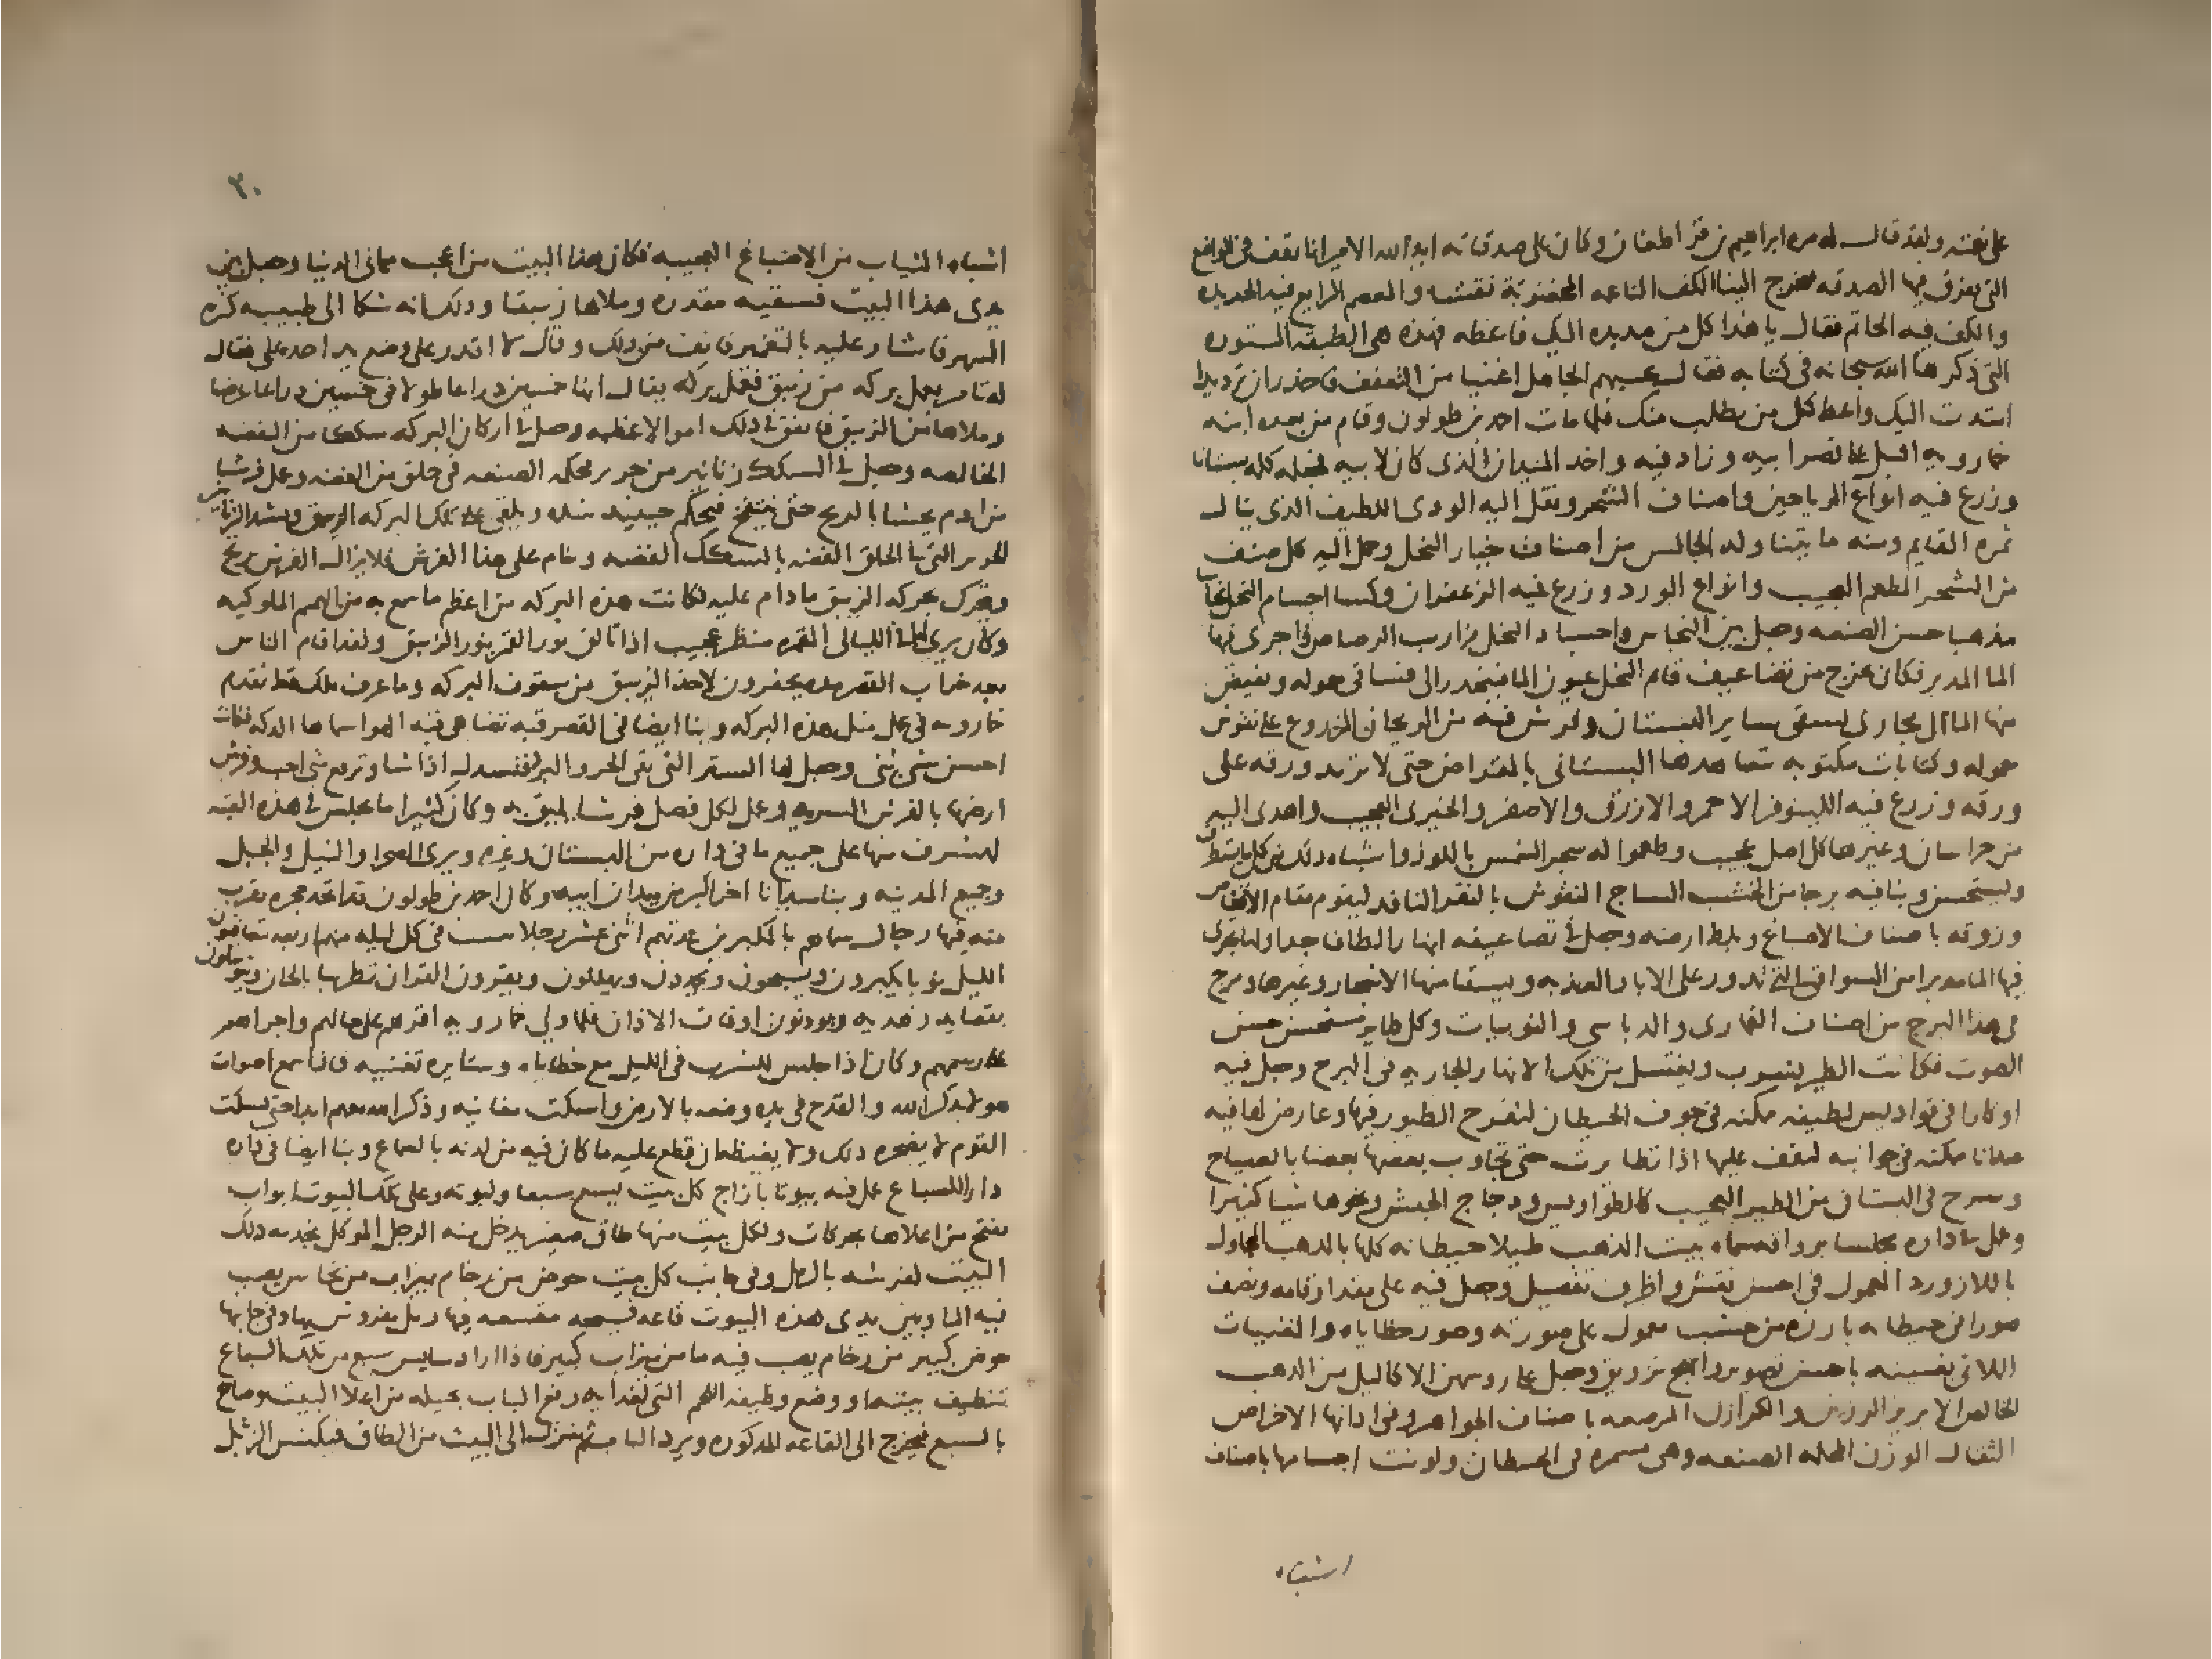 على نعته ولقد قال له مره ابراهيم بن قراطغان وكان على صدقاته ايد الله الامير انا نقف فى المواضع
التى نفرق فيها الصدقه فتخرج الينا الكف الناعمه المخضوبة نقشا والمعصم الرايع فيه الحديده
والكف فيه الخاتم فقال يا هذا كل من مد يده اليك فاعطه فهذه هى الطبقه المستوره
التى ذكرها الله سبحانه فى كتابه فقال يحسبهم الجاهل اغنيا من التعفف فاحذر ان ترد يدا
امتدت اليك واعط كل من يطلب منك فلما مات احمد بن طولون وقام من بعده ابنه
خمارويه اقبل على قصر ابيه وزاد فيه واخذ الميدان الذى كان لابيه فجعله كله بستانا
وزرع فيه انواع الرياحين واصناف الشجر ونقل اليه الودى اللطيف الذى ينال
ثمره القايم ومنه ما يتناوله الجالس من اصناف خيار النخل وحمل اليه كل صنف
من الشجر المطعم العجيب وانواع الورد وزرع فيه الزعفران وكسا اجسام النخل نحاسا
مذهبا حسن الصنعه وجعل بين النحاس واجساد النخل مزاريب الرصاص واجرى فيها
الما المدبر فكان يخرج من تضاعيف قايم النخل عيون الما فينحدر الى فساقى معموله ويفيض
منها الما الى مجارى تسقى ساير البستان وغرس فيه من الريحان المزروع على نقوش
معموله وكتابات مكتوبه يتعاهدها البستانى بالمقراض حتى لا تزيد ورقه على
ورقه وزرع فيه اللينوفر الاحمر والازرق والاصفر والخيرى العجيب واهدى اليه
من خراسان وغيرها كل اصل عجيب وطعموا له شجر المشمس باللوز واشباه ذلك من كل ما يستظرف
ويستحسن وبنا فيه برجا من الخشب الساج المنقوش بالنقر النافذ ليقوم مقام الاقفاص
وزوقه باصناف الاصباغ وبلط ارضه وجعل فى تضاعيفه انهارا لطاف جداولها يجرى
فيها الما مدبرا من السواقى التى تدور على الابار العذبه ويسقا منها الاشجار وغيرها وسرح
فى هذا البرج من اصناف القمارى والدباسى والنوبيات وكل طاير مستحسن حسن
الصوت فكانت الطير تشرب وتغتسل من تلك الانهار الجاريه فى البرج وجعل فيه
اوكارا فى قواديس لطيفه ممكنه فى جوف الحيطان لتفرخ الطيور فيها وعارض لها فيه
عيدانا ممكنه فى جوانبه لتقف عليها اذا تطايرت حتى يجاوب بعضها بعضا بالصياح
وسرح فى البستان من الطير العجيب كالطواويس ودجاج الحبش ونحوها شيا كثيرا
وعمل فى داره مجلسا برواقه سماه بيت الذهب طلا حيطانه كلها بالذهب المجاول
باللازورد المعمول فى احسن نقش واظرف تفصيل وجعل فيه على مقدار قامه ونصف
صورا فى حيطانه بارزه من خشب معمول على صورته وصور حظاياه والمغنيات
اللاتى يغنينه باحسن تصوير وابهج تزويق وجعل على روسهن الاكاليل من الذهب
الخالص الابريز الرزين والكوازن المرصعه باصناف الجواهر وفى اذانها الاخراص
الثقال الوزن المحكمه الصنعه وهى مسمره فى الحيطان ولونت اجسامها باصناف
اشباه
٢٠
اشباه الثياب من الاصباغ العجيبه فكان هذا البيت من اعجب مبانى الدنيا وجعل بين
يدى هذا البيت فسقيه مقدره وملاها زيبقا وذلك انه شكا الى طبيبه كثره
السهر فاشار عليه بالتغميز فانف من ذلك وقال لا اقدر على وضع يد احد على فقال
له تامر بعمل بركه من زيبق فعمل بركه يقال انها خمسين ذراعا طولا فى خمسين ذراعا عرضا
وملاها من الزيبق فانفق فى ذلك اموالا عظيمه وجعل فى اركان البركه سككا من الفضه
الخالصه وجعل فى السكك زنانير من حرير محكمه الصنعه فى حلق من الفضه وعمل فرشا
من ادم يحشا بالريح حتى ينتفخ فيحكم حينيذ شده ويلقى على تلك البركه الزيبق ويشد الزنانير
الحرير التى فى الحلق الفضه بالسكك الفضه وينام على هذا الفرش فلا يزال الفرش يرتج
ويتحرك بحركه الزيبق ما دام عليه فكانت هذه البركه من اعظم ما سمع به من الهمم الملوكيه
وكان يرى لها فى الليالى المقمره منظر عجيب اذا تالف نور القمر بنور الزيبق ولقد اقام الناس
بعد خراب القصر مده يحفرون لاخذ الزيبق من شقوق البركه وما عرف ملك قط تقدم
خمارويه فى عمل مثل هذه البركه وبنا ايضا فى القصر قبه تضاهى قبه الهوا سماها الدكه فكانت
احسن شى بنى وجعل لها الستر التى تقى الحر والبرد فتسدل اذا شا وترفع متى احب وفرش
ارضها بالفرش السريه وعمل لكل فصل فرشا يليق به وكان كثيرا ما يجلس فى هذه القبه
ليشرف منها على جميع ما فى داره من البستان وغيره ويرى الصحرا والنيل والجبل
وجميع المدينه وبنا ميدانا اخر اكبر من ميدان ابيه وكان احمد بن طولون قد اتخذ حجره بقرب
منه فيها رجال سماهم بالمكبرين عدتهم اثنى عشر رجلا يبيت فى كل ليله منهم اربعه يتعاقبون
الليل نوبا يكبرون ويسبحون ويحمدون ويهللون ويقرون القران تطريبا بالحان ويتوسلون
بقصايد زهديه ويوذنون اوقات الاذان فلما ولى خمارويه اقرهم على حالهم واجراهم
على رسمهم وكان اذا جلس للشرب فى الليل مع حظاياه وستايره تغنيه فاذا سمع اصوات
هولا بذكر الله والقدح فى يده وضعه بالارض واسكت مغانيه وذكر الله معهم ابدا حتى يسكت
القوم لا يضجره ذلك ولا يغيظه ان قطع عليه ما كان فيه من لذته بالسماع وبنا ايضا فى داره
دارا للسباع عمل فيه بيوتا بازاج كل بيت يسع سبعا ولبوته وعلى تلك البيوت ابواب
تفتح من اعلاها بحركات ولكل بيت منها طاق صغير يدخل منه الرجل الموكل بخدمه ذلك
البيت لفرشه بالرمل وفى جانب كل بيت حوض من رخام بميزاب من نحاس يصب
فيه الما وبين يدى هذه البيوت قاعه فسيحه متسعه فيها رمل مفروش بها وفى جانبها
حوض كبير من رخام يصب فيه ما من ميزاب كبير فاذا اراد سايس سبع من تلك السباع
تنظيف بيته او وضع وظيفه اللحم التى لغدايه رفع الباب بحيله من اعلا البيت وصاح
بالسبع فيخرج الى القاعه المذكوره ويرد الباب ثم ينزل الى البيت من الطاق فيكنس الزبل